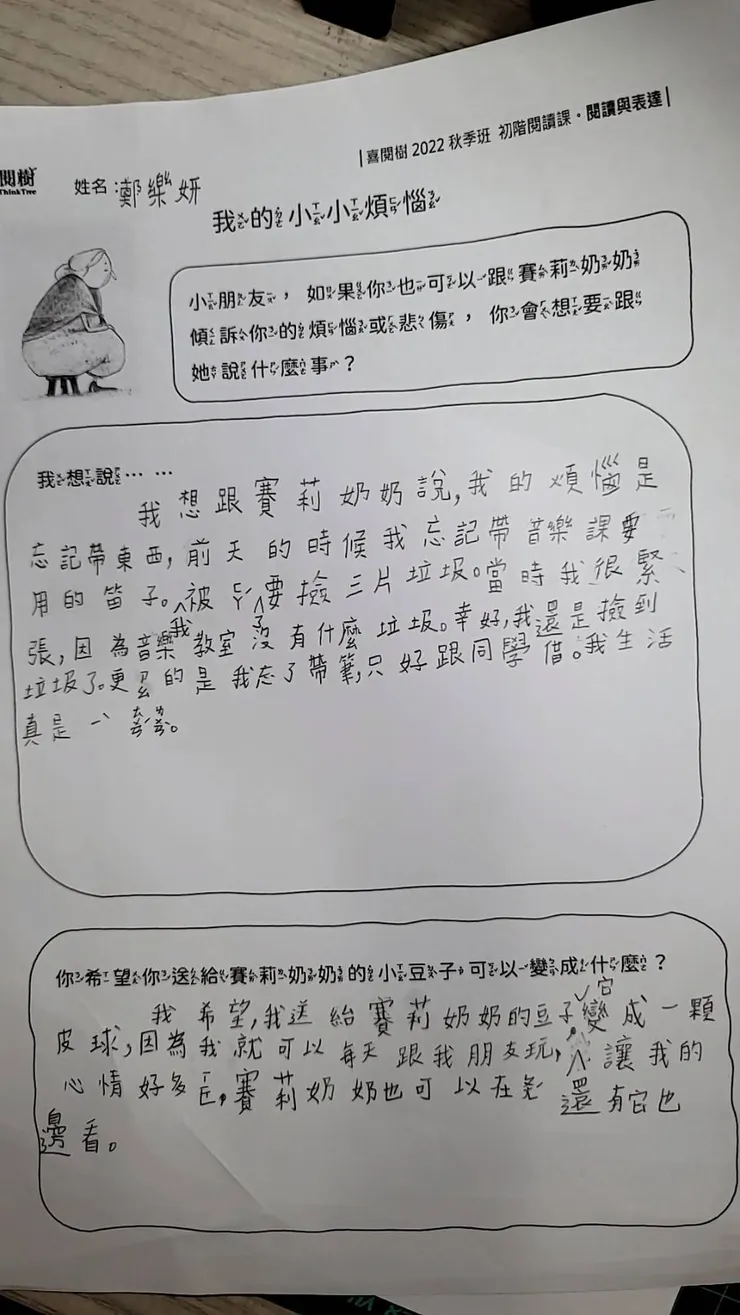 |喜閱樹 2022 秋季班 初階閱讀課。閱讀與表達|
閱樹
ThinkTree
姓名：鄭樂妍
我的小小煩惱
小朋友，如果你也可以跟賽莉奶奶
傾訴你的煩惱或悲傷，你會想要跟
她說什麼事？
我想說……
我想跟賽莉奶奶說,我的煩惱是
忘記帶東西,前天的時候我忘記帶音樂課要
用的笛子。我被ㄚˊ要撿三片垃圾。當時我很緊
張,因為音樂教室沒有什麼垃圾。幸好,我還是撿到
垃圾了。更ㄠ的是我忘了帶筆,只好跟同學借。我生活
真是ㄧˊ
你希望你送給賽莉奶奶的小豆子可以變成什麼？
我希望,我送給賽莉奶奶的豆子它變成一顆
皮球,因為我就可以每天跟我朋友玩,讓我的
心情好多ㄛ,賽莉奶奶也可以在
還有它也
邊看。